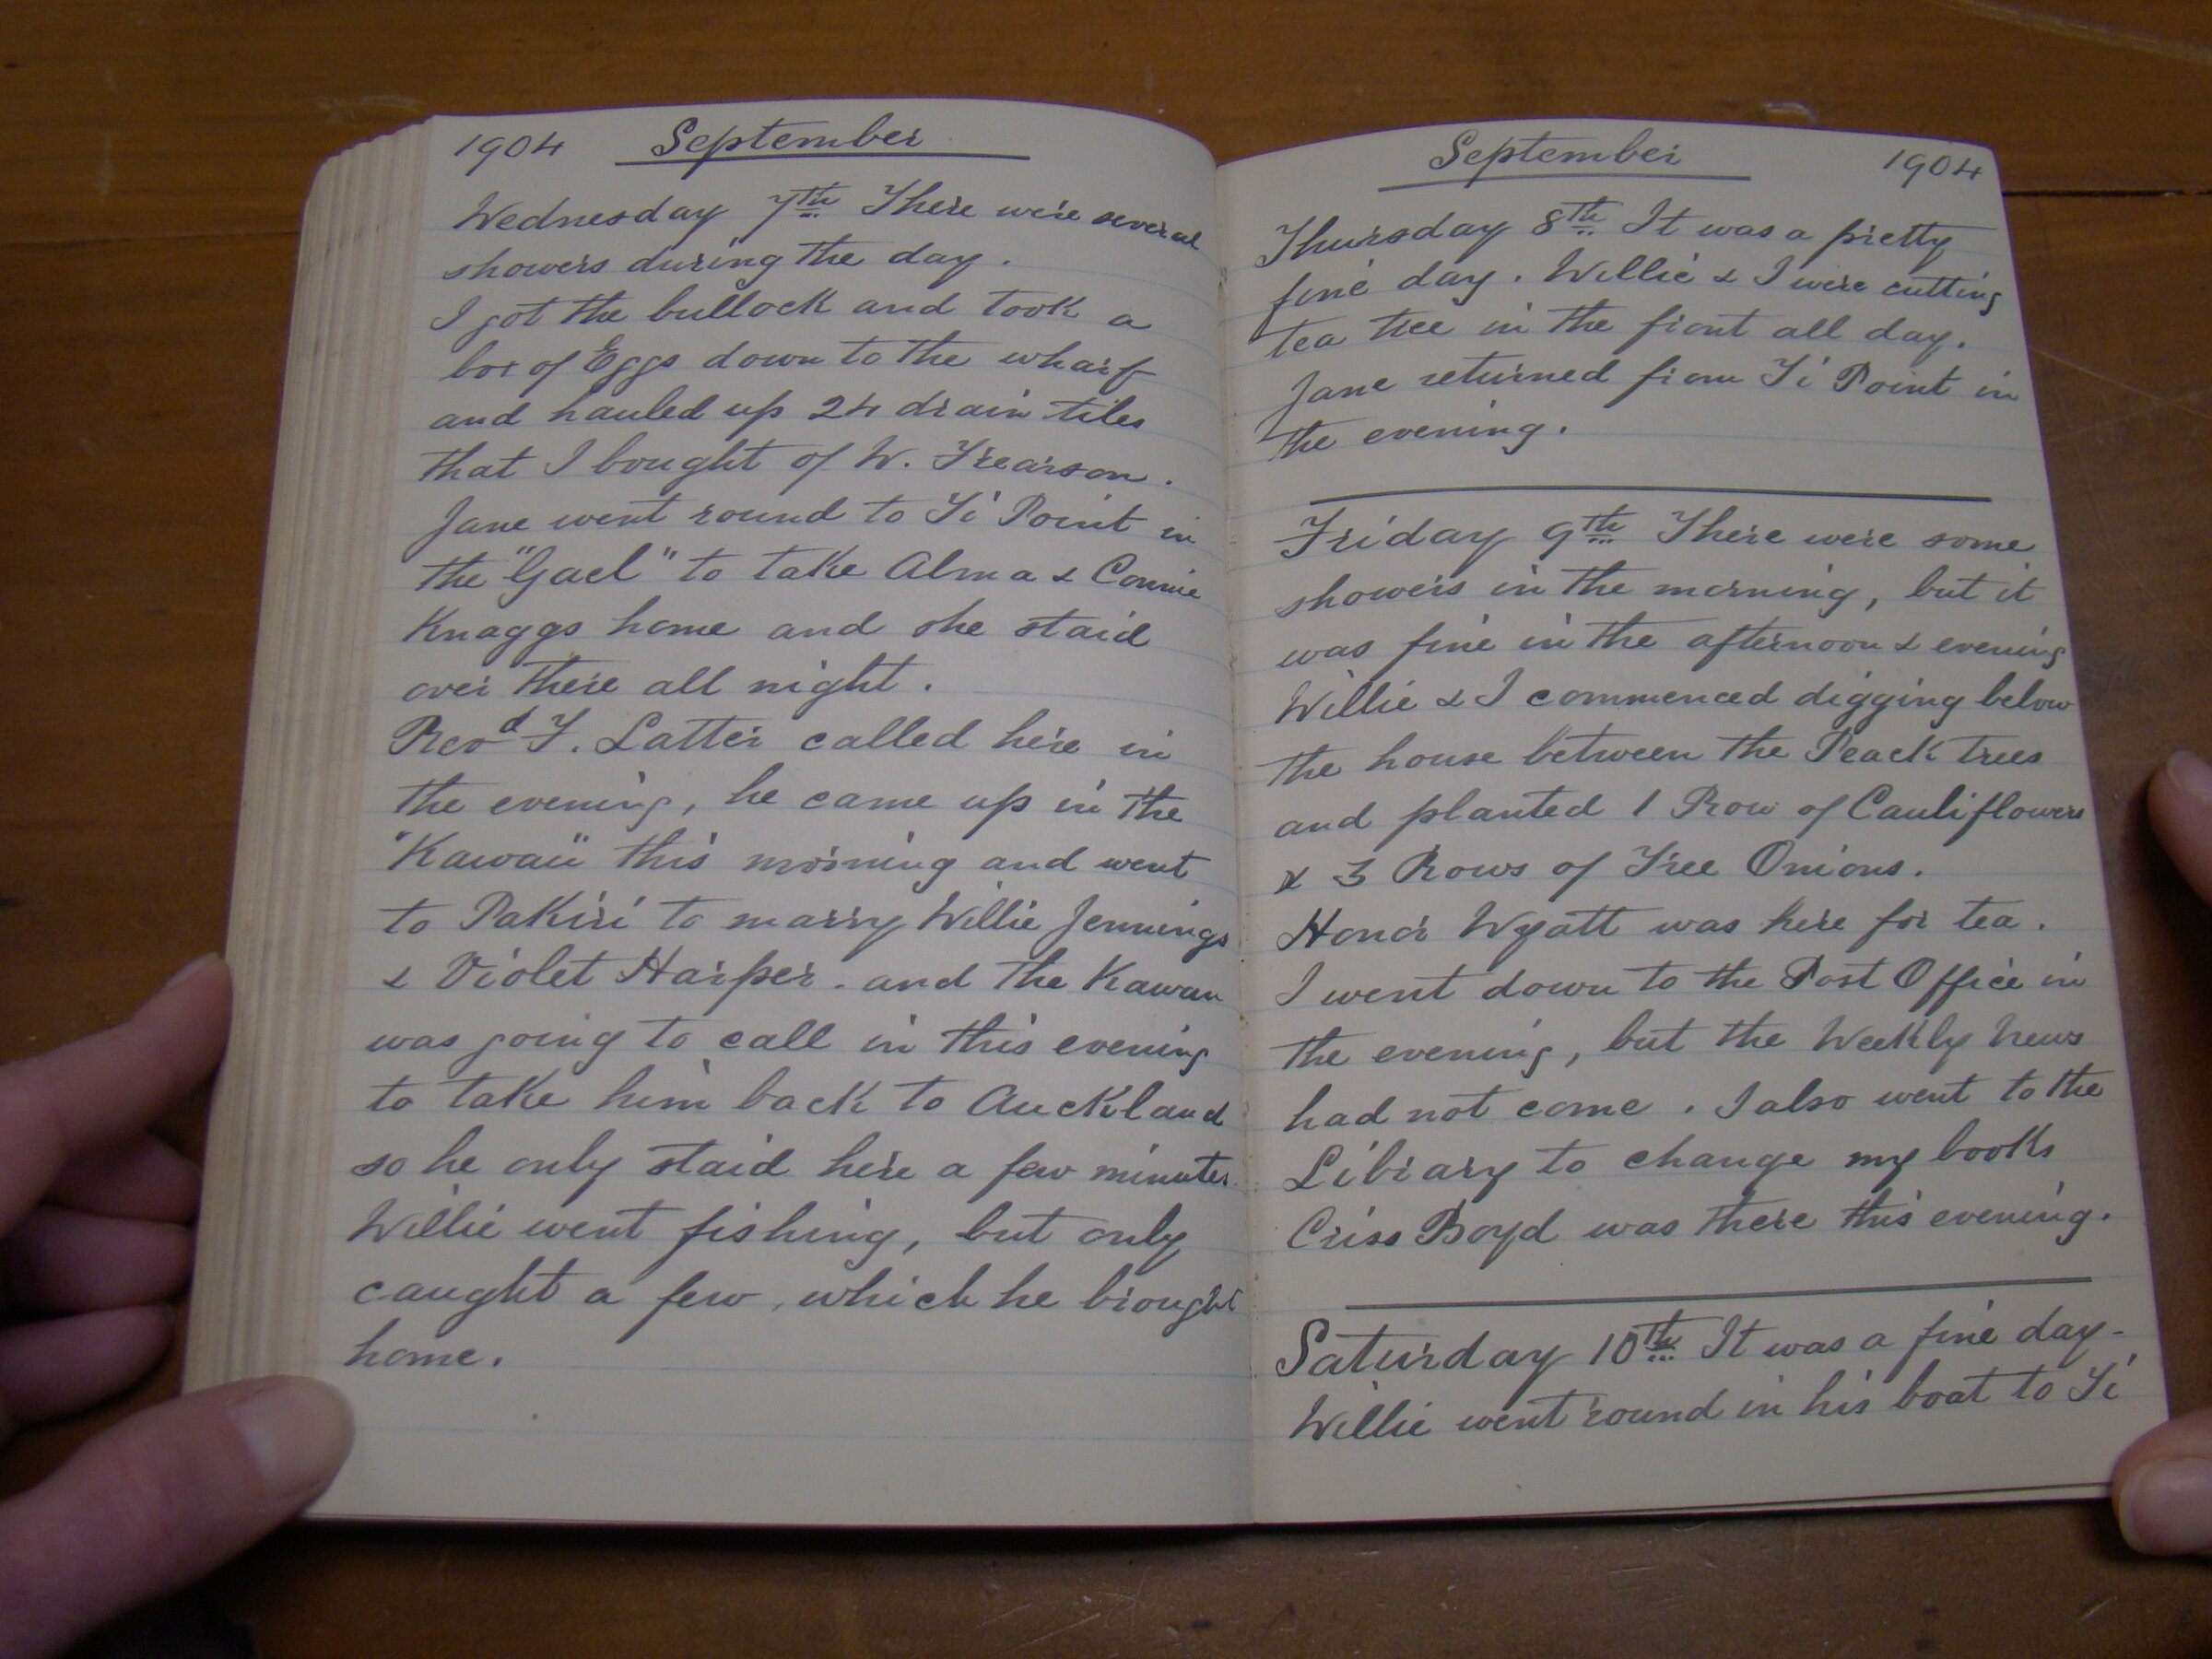 1904 September
Wednesday 7th There were several
showers during the day.
I got the bullock and took a
box of Eggs down to the wharf
and hauled up 24 drain tiles
that I bought of W. Frearson.
Jane went round to Ti Point in
the "Gael" to take Alma & Connie
Knaggs home and she staid
over there all night.
Revd F. Latter called here in
the evening, he came up in the
"Kawau" this morning and went
to Pakiri to marry Willie Jennings
& Violet Harper. and the Kawau
was going to call in this evening
to take him back to Auckland
so he only staid here a few minutes.
Willie went fishing, but only
caught a few, which he brought
home.
September 1904
Thursday 8th It was a pretty
fine day. Willie & I were cutting
tea tree in the front all day.
Jane returned from Ti Point in
the evening.
Friday 9th There were some
showers in the morning, but it
was fine in the afternoon & evening
Willie & I commenced digging below
the house between the Peach trees
and planted 1 Row of Cauliflowers
& 3 Rows of Tree Onions.
Honor Wyatt was here for tea.
I went down to the Post Office in
the evening, but the Weekly News
had not come. I also went to the
Library to change my books
Criss Boyd was there this evening.
Saturday 10th It was a fine day-
Willie went round in his boat to Ti